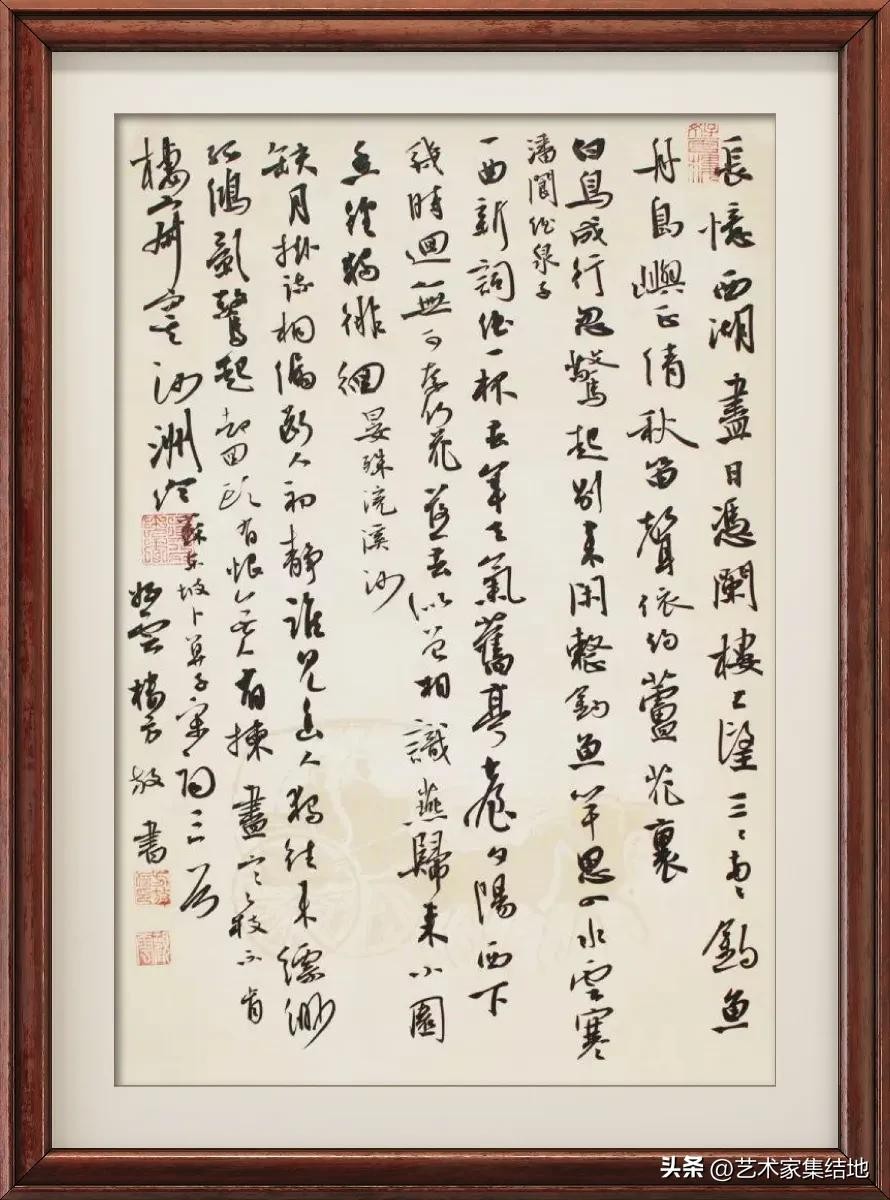 長憶西湖盡日憑闌樓上望三〻兩〻釣魚
舟島嶼正清秋笛聲依約蘆花裏
白鳥成行忽驚起別來閑整釣魚竿思入水雲寒
潘閬酒泉子
一曲新詞酒一杯去年天氣舊亭臺夕陽西下
幾時迴無可奈何花落去似曾相識燕歸來小園
香徑獨徘徊
晏殊浣溪沙
缺月掛疏桐漏斷人初靜誰見幽人獨往來縹緲
孤鴻影驚起卻回頭有恨無人省揀盡寒枝不肯
棲寂寞沙洲冷
蘇東坡卜算子宋詞三首
雲楊方敬書
头条 @艺术家集结地